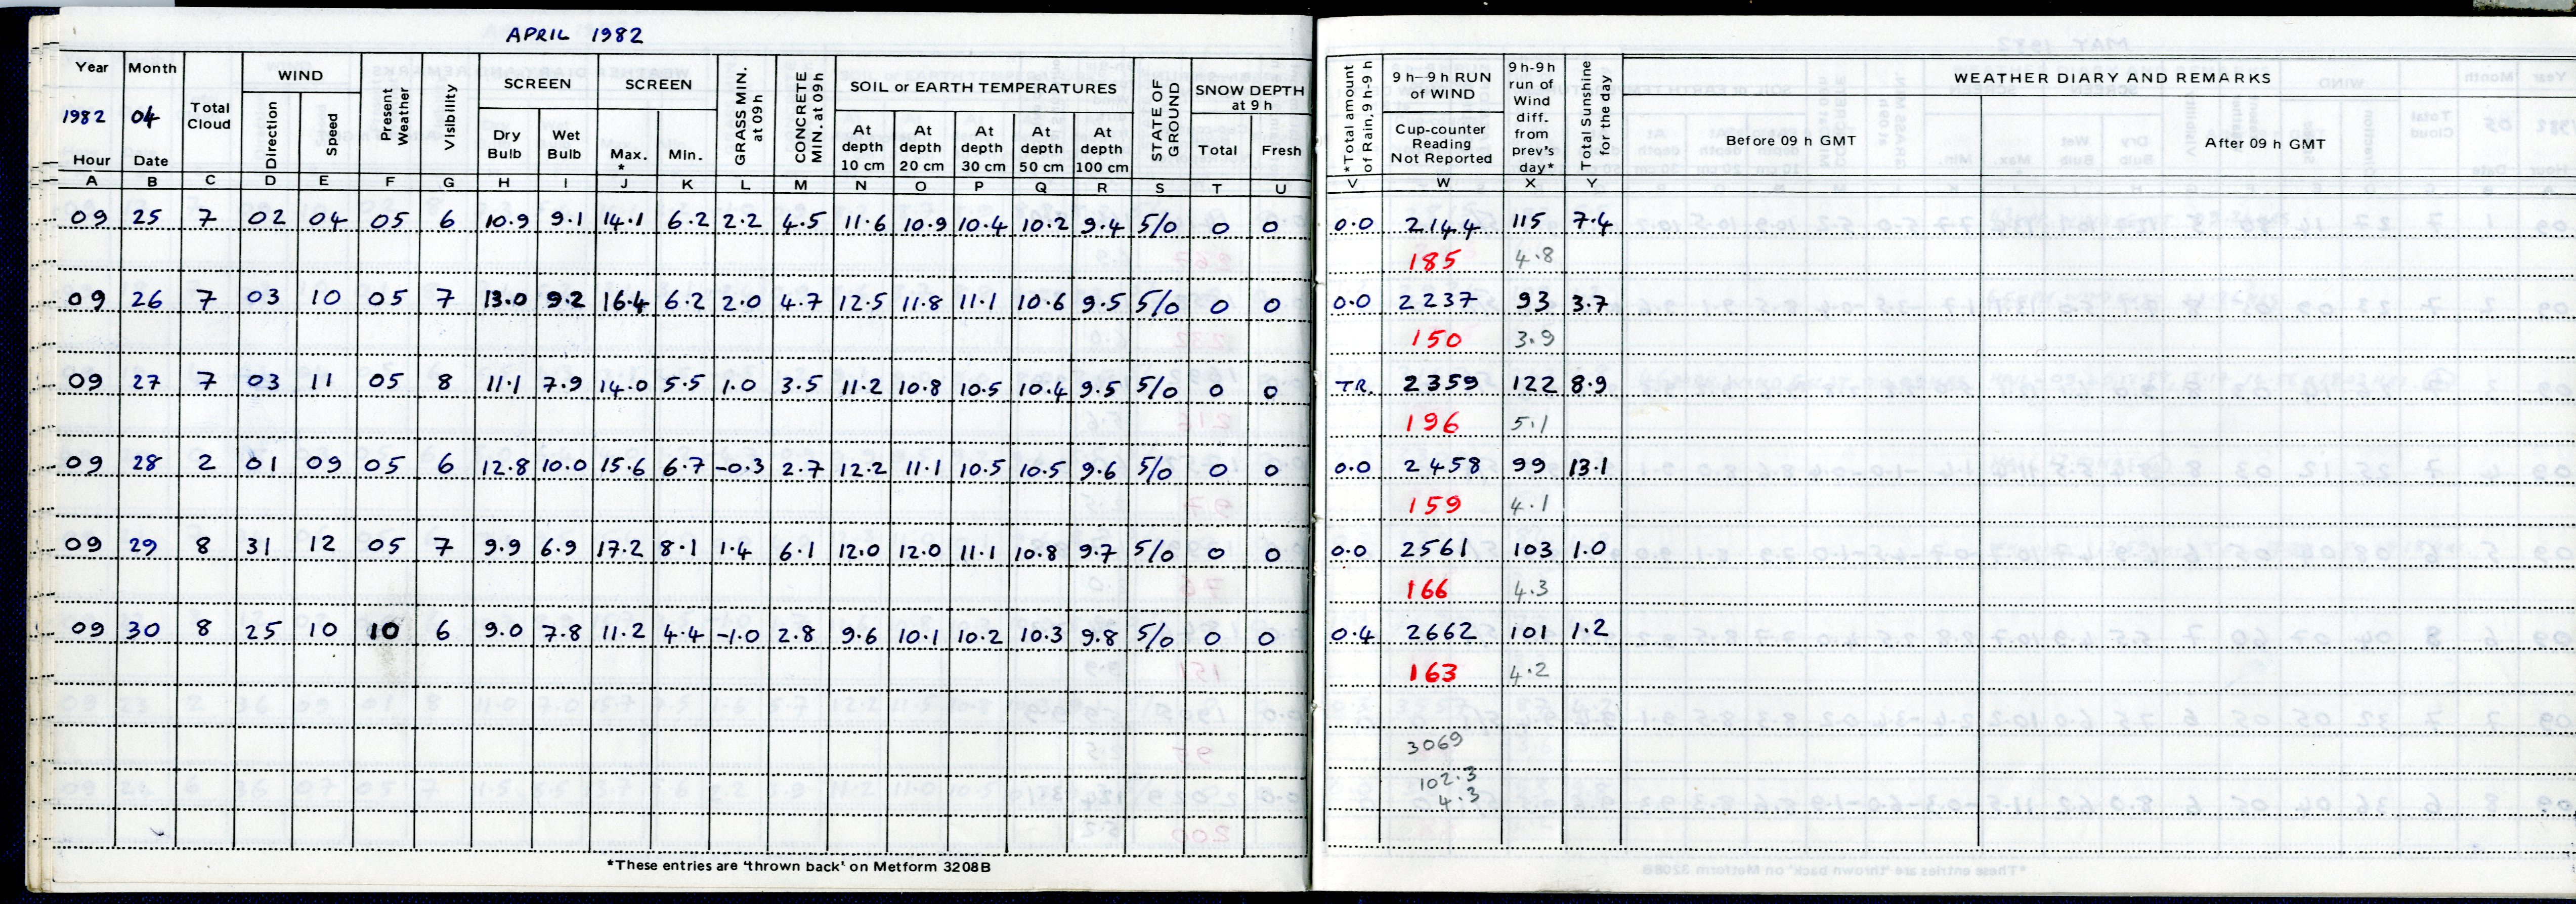 APRIL 1982
Year Month Total Cloud WIND Present Weather Visibility SCREEN SCREEN GRASS MIN. at 09 h CONCRETE MIN. at 09 h SOIL or EARTH TEMPERATURES STATE OF GROUND SNOW DEPTH at 9 h *Total amount of Rain, 9 h-9 h 9 h–9 h RUN of WIND 9 h-9h run of Wind diff. from prev's day* Total Sunshine for the day WEATHER DIARY AND REMARKS
1982 04 Direction Speed Dry Bulb Wet Bulb Max. * Min. At depth 10 cm At depth 20 cm At depth 30 cm At depth 50 cm At depth 100 cm Total Fresh Cup-counter Reading Not Reported Before 09 h GMT After 09 h GMT
Hour Date
A B C D E F G H I J K L M N O P Q R S T U V W X Y
09 25 7 02 04 05 6 10.9 9.1 14.1 6.2 2.2 4.5 11.6 10.9 10.4 10.2 9.4 5/0 0 0 0.0 2144 115 7.4
185 4.8
09 26 7 03 10 05 7 13.0 9.2 16.4 6.2 2.0 4.7 12.5 11.8 11.1 10.6 9.5 5/0 0 0 0.0 2237 93 3.7
150 3.9
09 27 7 03 11 05 8 11.1 7.9 14.0 5.5 1.0 3.5 11.2 10.8 10.5 10.4 9.5 5/0 0 0 TR. 2359 122 8.9
196 5.1
09 28 2 01 09 05 6 12.8 10.0 15.6 6.7 -0.3 2.7 12.2 11.1 10.5 10.5 9.6 5/0 0 0 0.0 2458 99 13.1
159 4.1
09 29 8 31 12 05 7 9.9 6.9 17.2 8.1 1.4 6.1 12.0 12.0 11.1 10.8 9.7 5/0 0 0 0.0 2561 103 1.0
166 4.3
09 30 8 25 10 10 6 9.0 7.8 11.2 4.4 -1.0 2.8 9.6 10.1 10.2 10.3 9.8 5/0 0 0 0.4 2662 101 1.2
163 4.2
3069
102.3
4.3
*These entries are 'thrown back' on Metform 3208B